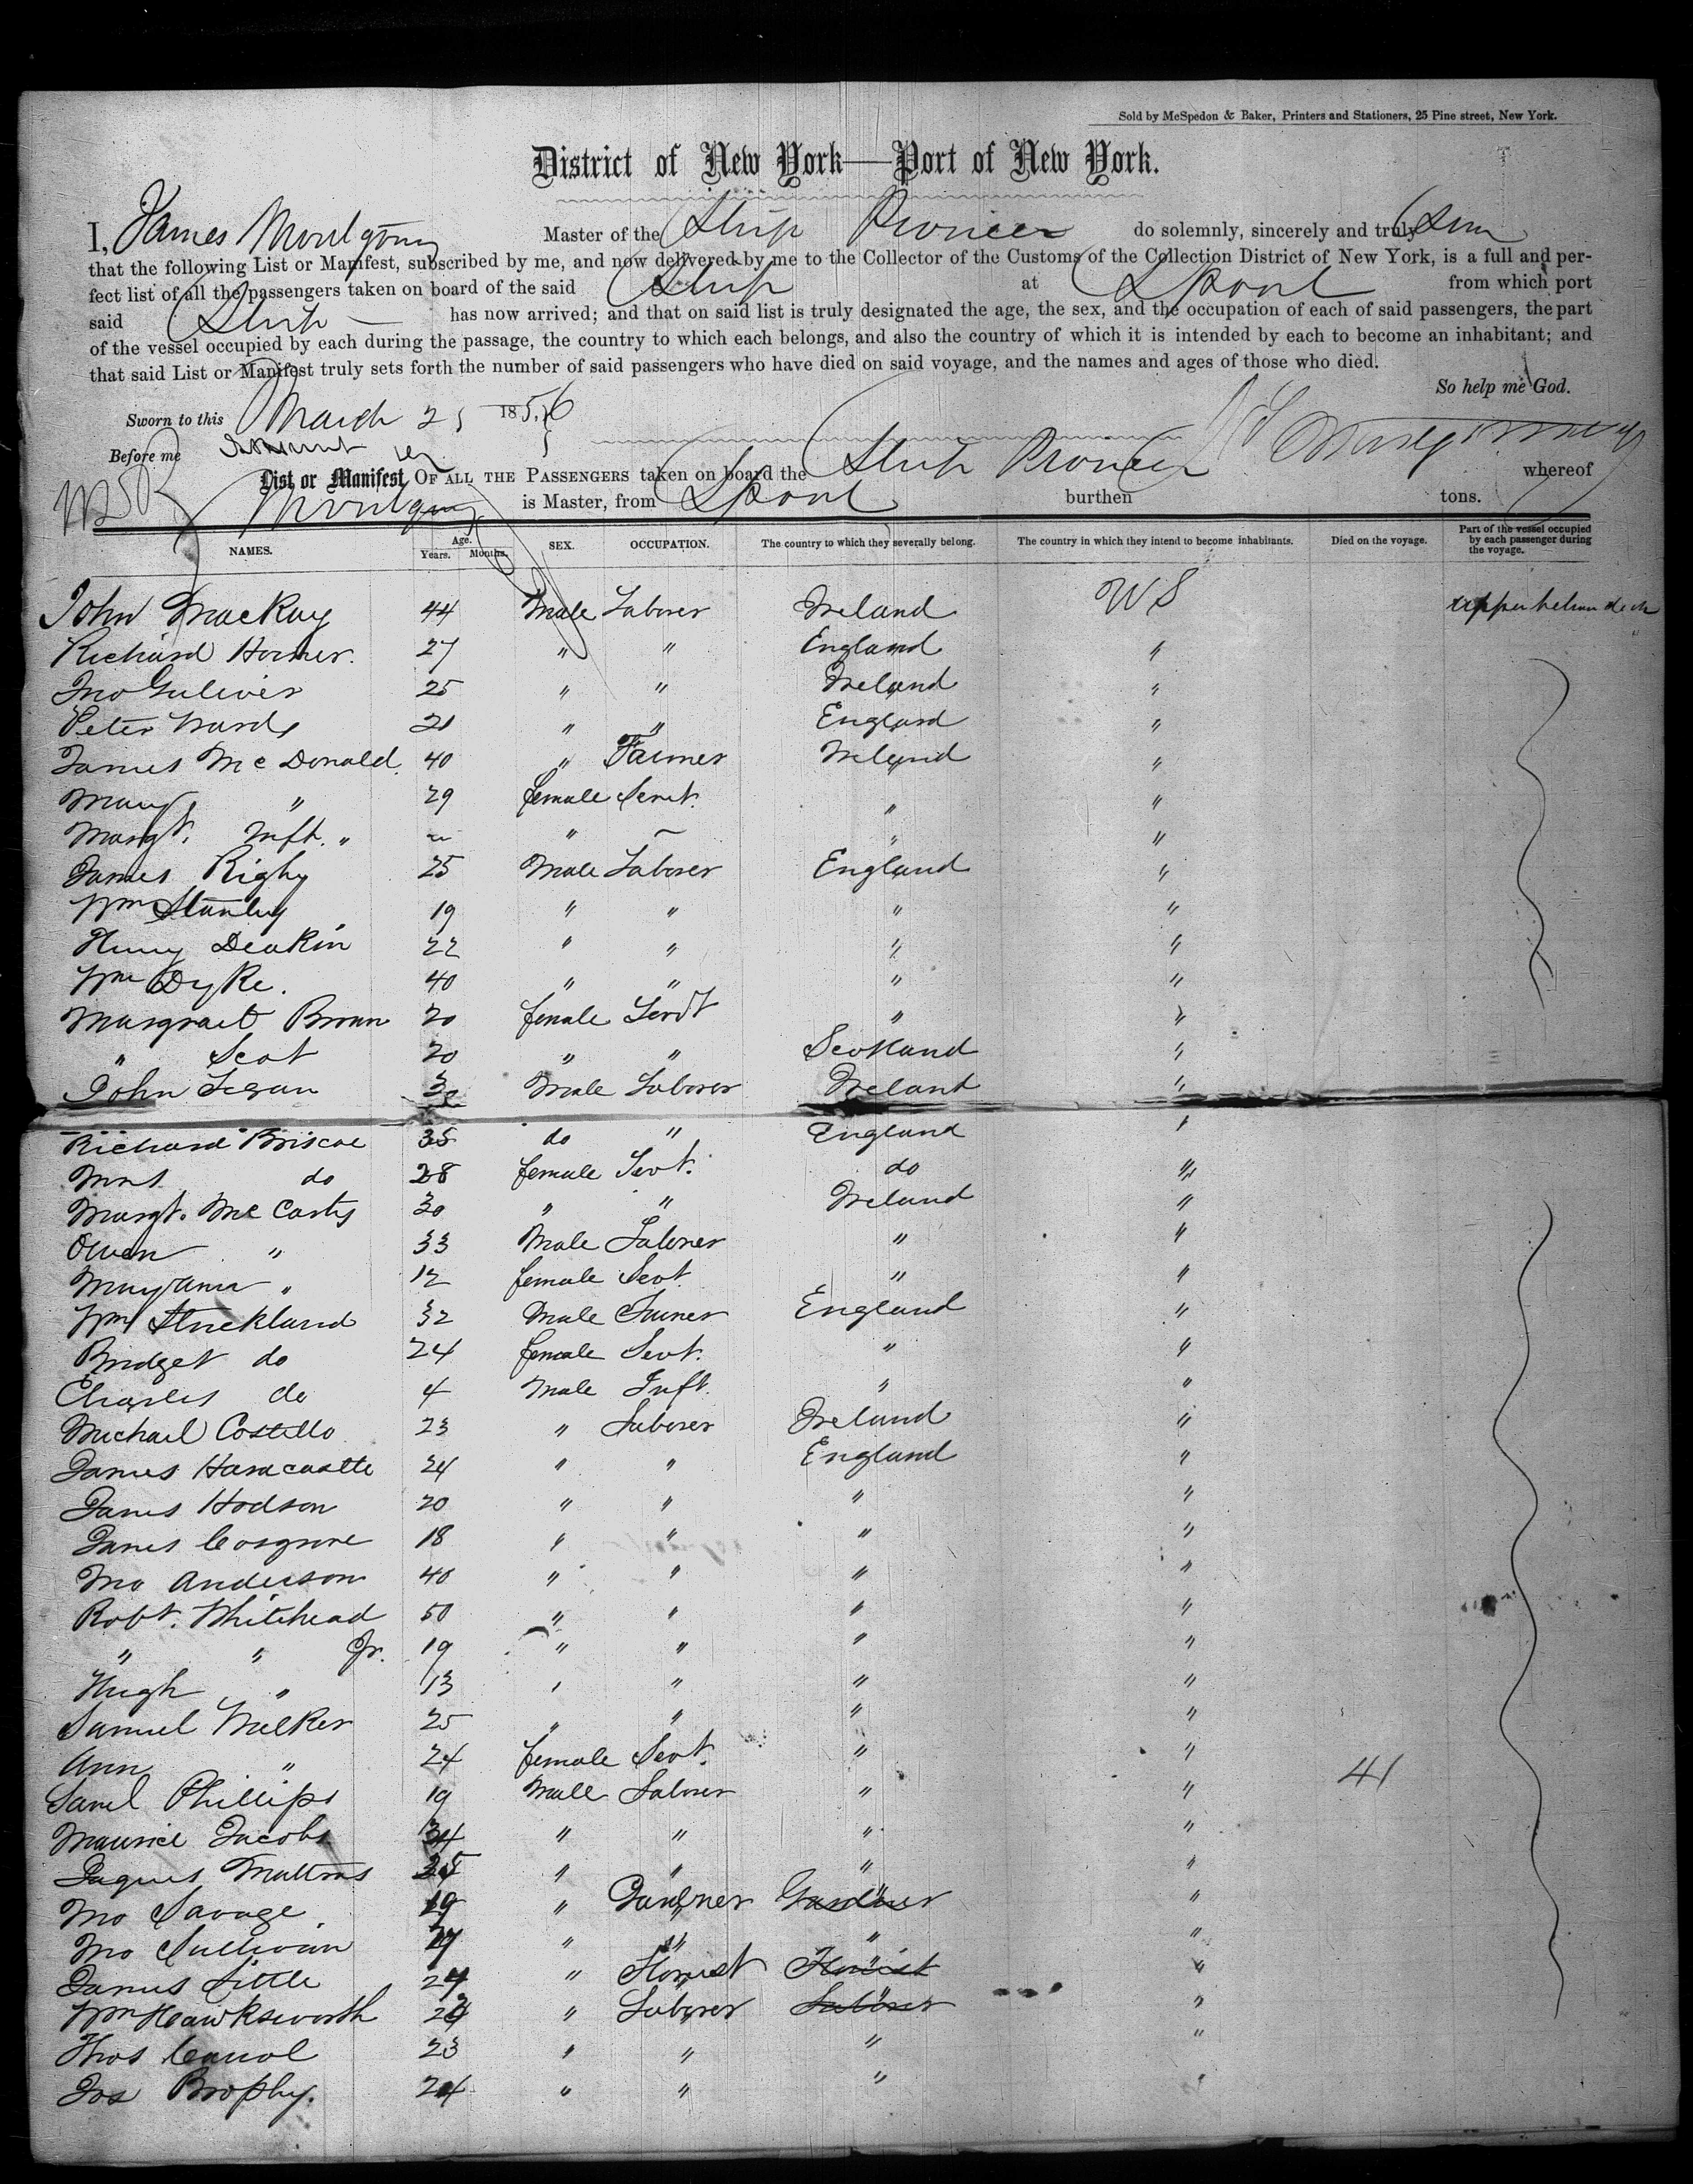 Sold by McSpedon & Baker, Printers and Stationers, 25 Pine street, New York.
District of New York—Port of New York.
I, James Montgomy Master of the Ship Pioneer do solemnly, sincerely and truly
that the following List or Manifest, subscribed by me, and now delivered by me to the Collector of the Customs of the Collection District of New York, is a full and per-
fect list of all the passengers taken on board of the said Ship at Lpool from which port
said Ship has now arrived; and that on said list is truly designated the age, the sex, and the occupation of each of said passengers, the part
of the vessel occupied by each during the passage, the country to which each belongs, and also the country of which it is intended by each to become an inhabitant; and
that said List or Manifest truly sets forth the number of said passengers who have died on said voyage, and the names and ages of those who died.
So help me God.
Sworn to this March 25 1856
Before me
List or Manifest OF ALL THE PASSENGERS taken on board the Ship Pioneer whereof
Montgomy is Master, from Lpool burthen tons.
NAMES. Age. Years. Months. SEX. OCCUPATION. The country to which they severally belong. The country in which they intend to become inhabitants. Died on the voyage. Part of the vessel occupied by each passenger during the voyage.
John MacKay 44 Male Laborer Ireland US upper between deck
Richard Horner. 27 " " England "
Jno Guliver 25 " " Ireland "
Peter Wards 21 " " England "
James McDonald 40 " Farmer Ireland "
Mary " 29 female Servt. " "
Margt. Inft. " ~ " ~ " "
James Rigby 25 Male Laborer England "
Wm Stanley 19 " " " "
Henry Deakin 22 " " " "
Wm Dyke. 40 " " " "
Margraet Brown 20 female Servt " "
" Scot 20 " " Scotland "
John Legan 30 Male Laborer Ireland "
Richard Briscoe 35 do " England "
Mrs do 28 female Servt. do "
Margt. McCarty 30 " " Ireland "
Owen " 33 Male Laborer " "
Mary Ann " 12 female Servt " "
Wm Strickland 32 Male Farmer England "
Bridget do 24 female Servt. " "
Charles do 4 Male Inft. " "
Michael Costello 23 " Laborer Ireland "
James Hardcastle 24 " " England "
James Hodson 20 " " " "
James Cosgrove 18 " " " "
Jno Anderson 40 " " " "
Robt. Whitehead 50 " " " "
" " Jr. 19 " " " "
Hugh " 13 " " " "
Samuel Walker 25 " " " "
Ann " 24 female Servt. " " 41
Saml Phillips 19 Male Laborer " "
Maurice Jacobs 34 " " " "
Jaques Mattras 25 " " " "
Jno Savage 19 " Gardner Gardner "
Jno Sullivan 27 " " " "
James Little 24 " Florist Florist "
Wm Hawksworth 24 " Laborer Laborer "
Thos Carrol 23 " " " "
Jos Brophy. 24 " " "